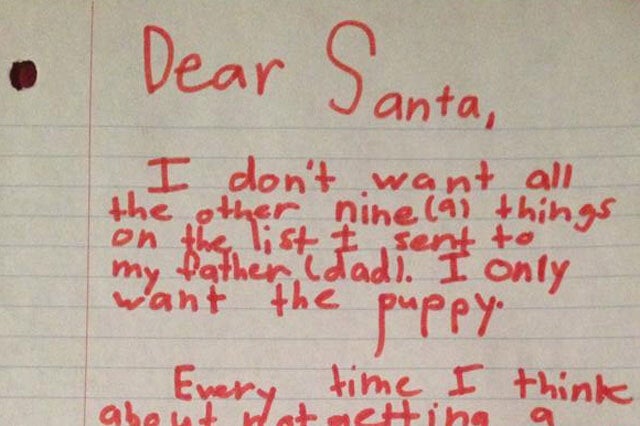 Dear Santa,
I don't want all
the other nine (9) things
on the list I sent to
my father (dad). I only
want the puppy.
Every time I think
about not getting a